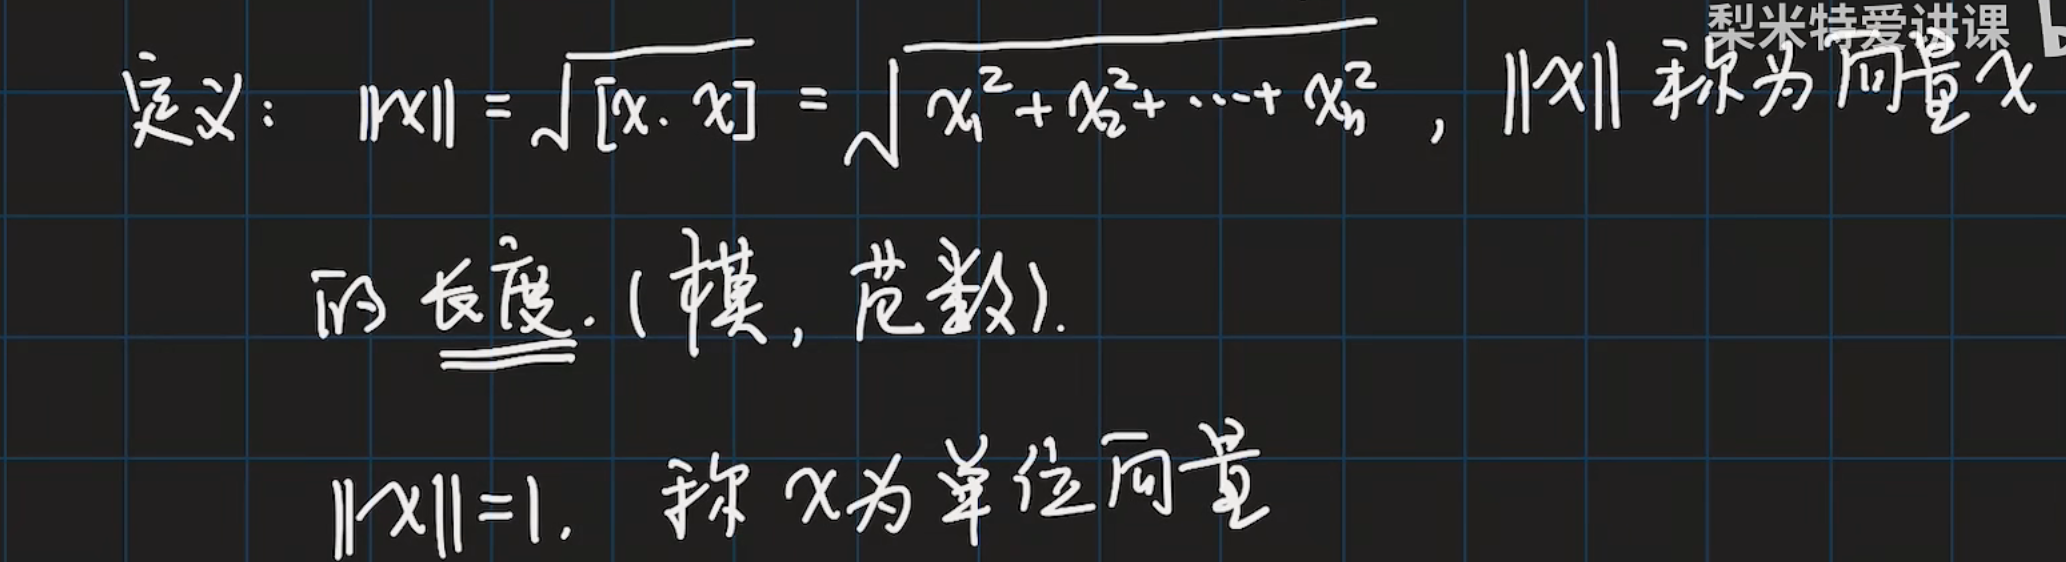 梨米特爱讲课
定义: ||x|| = √[x. x] = √x₁²+x₂²+…+xₙ² , ||x|| 称为向量x
的长度. (模, 范数).
||x||=1. 称x为单位向量